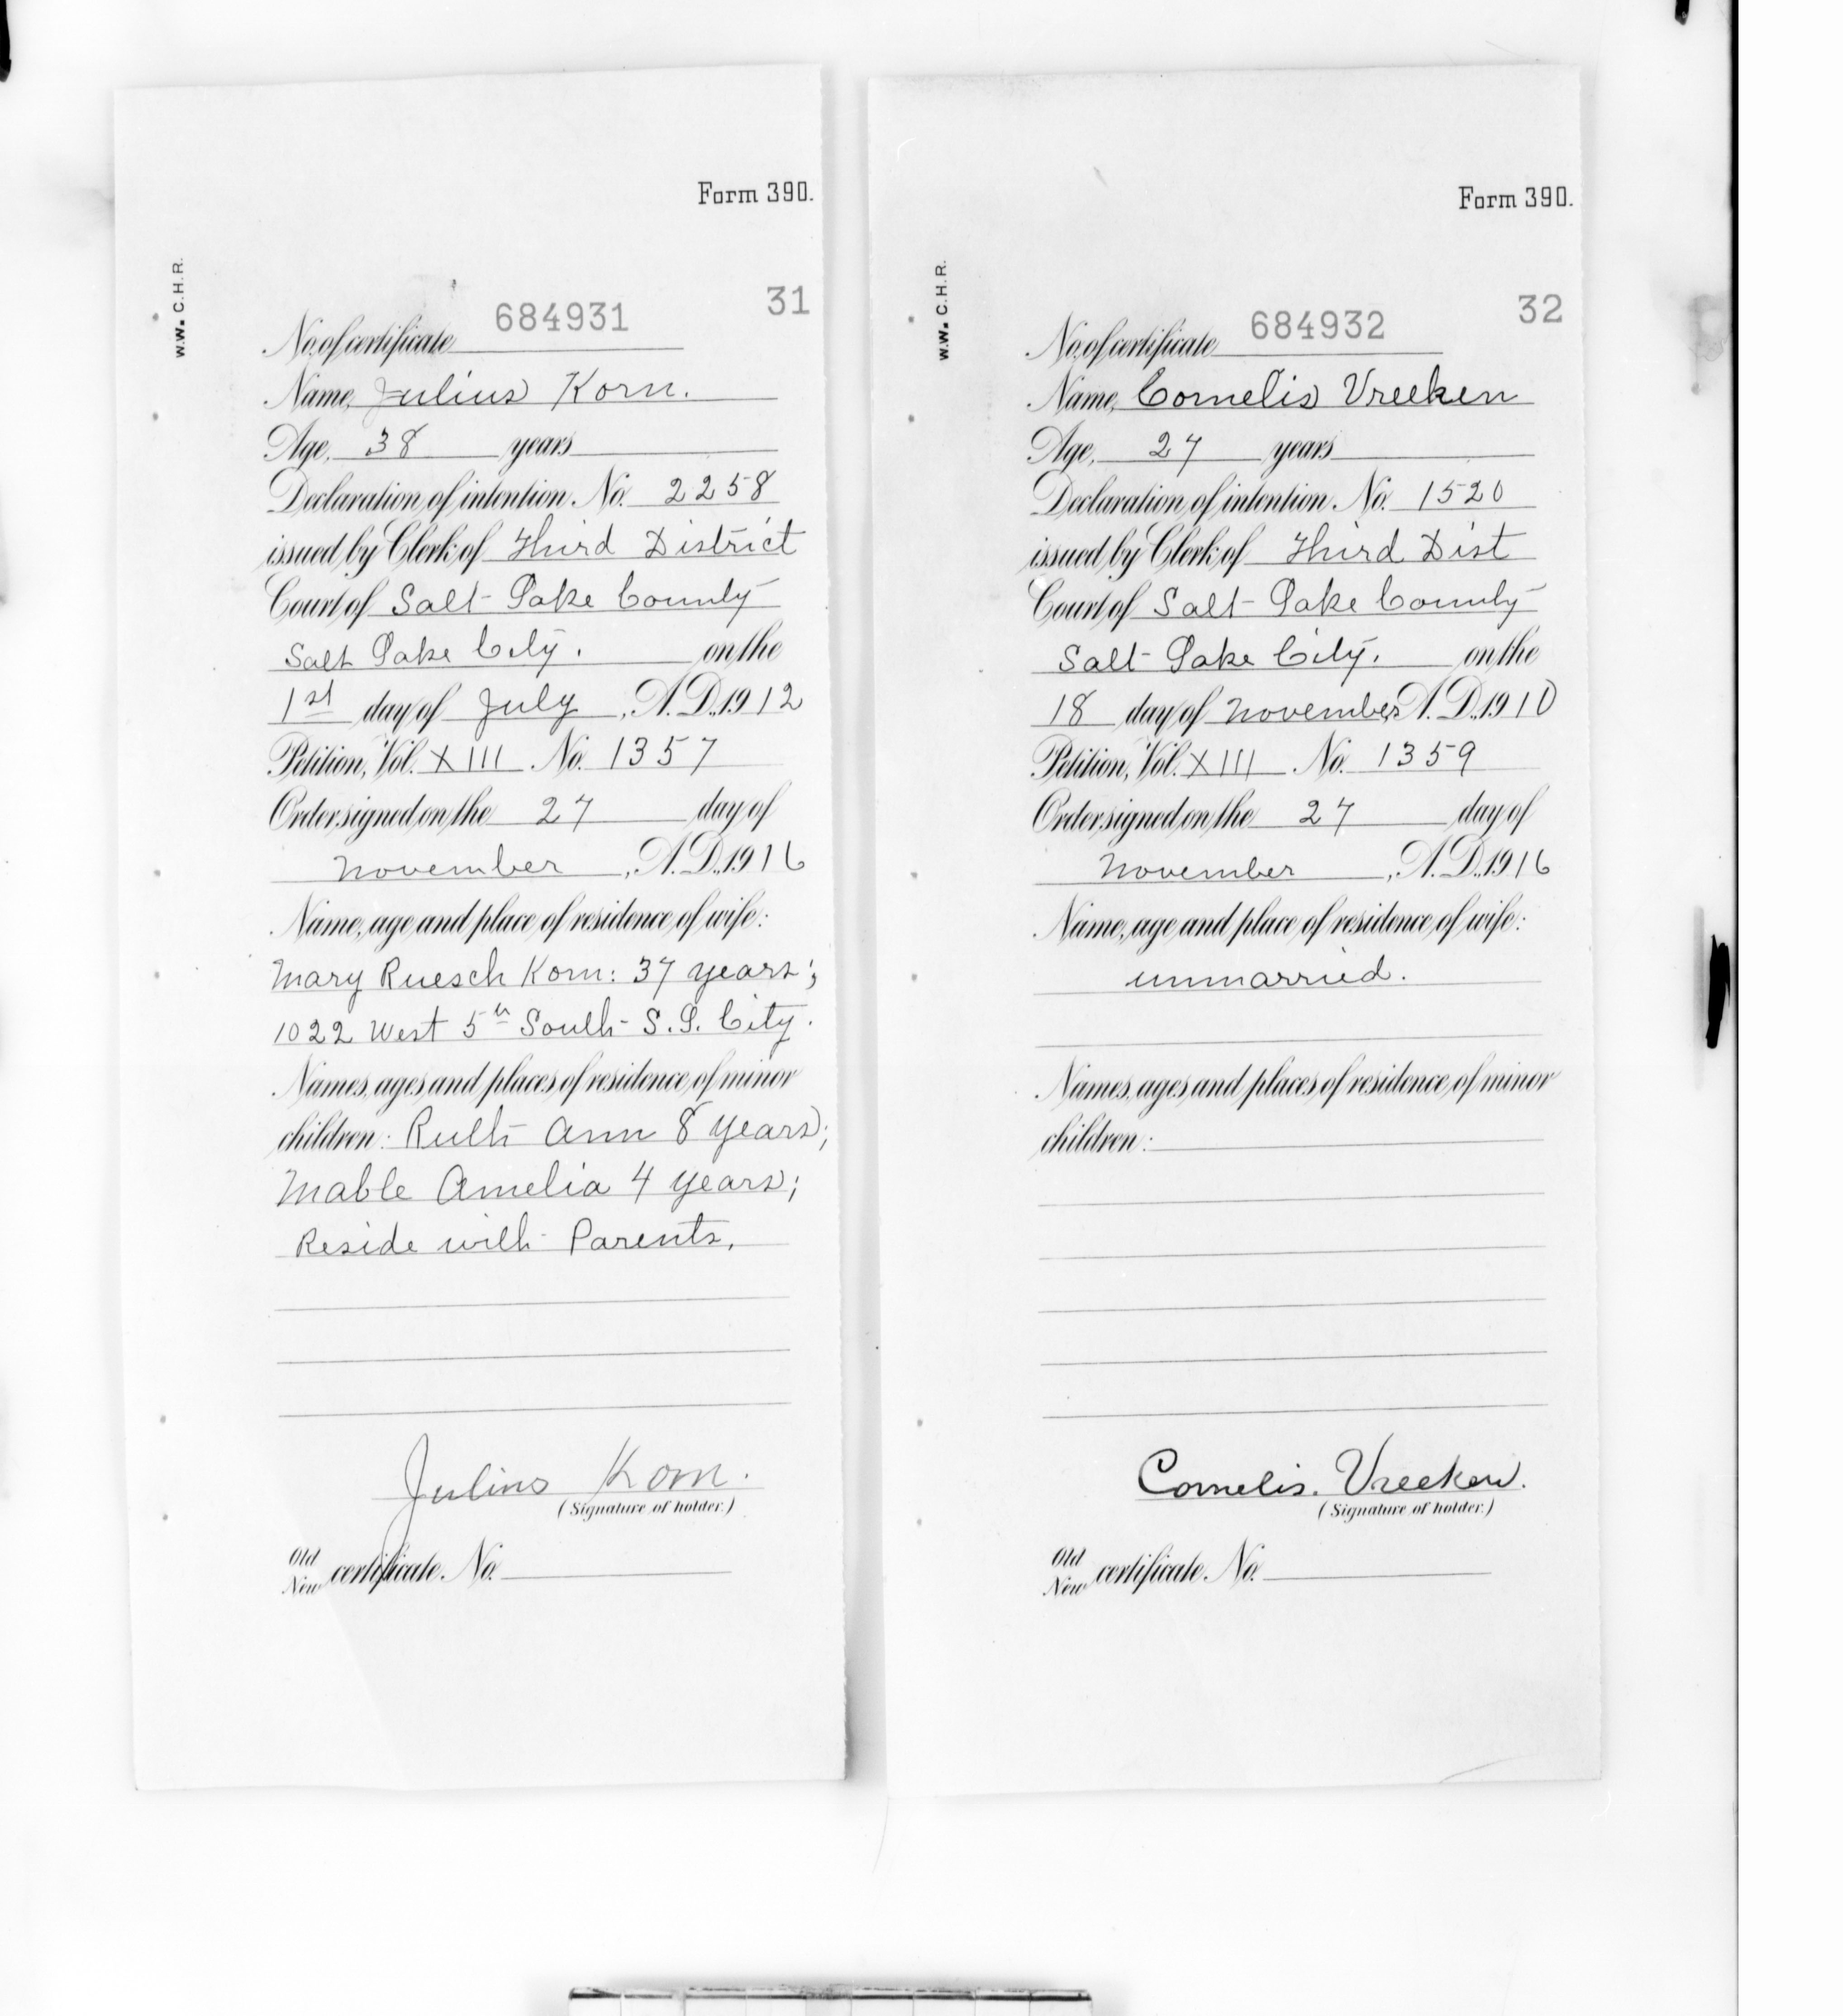 Form 390.
W.W. C.H.R.
31
No. of certificate 684931
Name, Julius Korn.
Age, 38 years
Declaration of intention, No. 2258
issued by Clerk of Third District
Court of Salt Lake County
Salt Lake City. on the
1st day of July, A.D., 1912
Petition, Vol. XIII No. 1357
Order signed on the 27 day of
November, A.D., 1916
Name, age and place of residence of wife:
Mary Ruesch Korn: 37 years;
1022 West 5th South S.L. City.
Names, ages and places of residence of minor
children: Ruth Ann 8 years;
Mable Amelia 4 years;
Reside with Parents.
Julius Korn.
(Signature of holder.)
Old
New certificate, No.
Form 390.
W.W. C.H.R.
32
No. of certificate 684932
Name, Cornelis Vreeken
Age, 27 years
Declaration of intention, No. 1520
issued by Clerk of Third Dist
Court of Salt Lake County
Salt Lake City. on the
18 day of November A.D., 1910
Petition, Vol. XIII No. 1359
Order signed on the 27 day of
November, A.D., 1916
Name, age and place of residence of wife:
unmarried.
Names, ages and places of residence of minor
children:
Cornelis. Vreeken.
(Signature of holder.)
Old
New certificate, No.